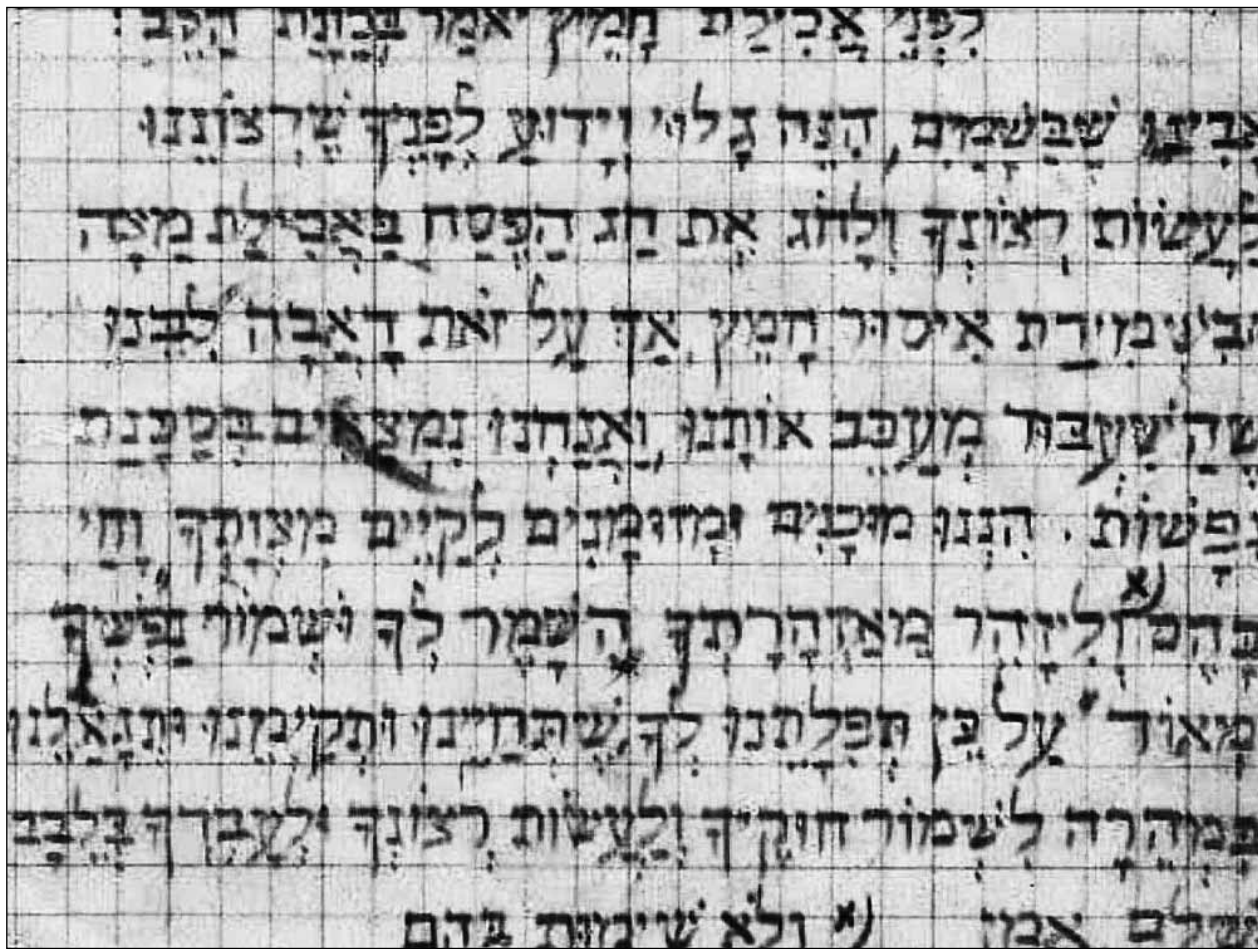 לִפְנֵי אֲכִילַת חָמֵץ יֹאמַר בְּכַוָנַת הַלֵב:
אָבִינוּ שֶׁבַּשָׁמַיִם, הִנֵה גָלוּי וְיָדוּעַ לְפָנֶיךָ שֶׁרְצוֹנֵנוּ
לַעֲשׂוֹת רְצוֹנְךָ וְלָחֹג אֶת חַג הַפֶּסַח בַּאֲכִילַת מַצָה
וּבִשְׁמִירַת אִיסוּר חָמֵץ, אַךְ עַל זֹאת דָאֲבָה לִבֵּנוּ
שֶׁהַשִׁעְבּוּד מְעַכֵּב אוֹתָנוּ, וַאֲנַחְנוּ נִמְצָאִים בְּסַכָּנַת
נְפָשׁוֹת. הִנְנוּ מוּכָנִים וּמְזוּמָנִים לְקַיֵים מִצְוֹתֶךָ וָחַי
בָּהֶם (א וְלִיזָהֵר מֵאַזְהָרָתְךָ הִשָׁמֶר לְךָ וּשְׁמוֹר נַפְשְׁךָ
מְאוֹד עַל כֵּן תְּפִלָתֵנוּ לְךָ שֶׁתְּחַיֵינוּ וּתְקַיְמֵנוּ וְתִגְאָלֵנוּ
בִּמְהֵרָה לִשְׁמוֹר חוּקֶיךָ וְלַעֲשׂוֹת רְצוֹנְךָ וּלְעָבְדְךָ בְּלֵבָב
שָׁלֵם אָמֵן (א וְלֹא שֶׁיָמוּת בָּהֶם